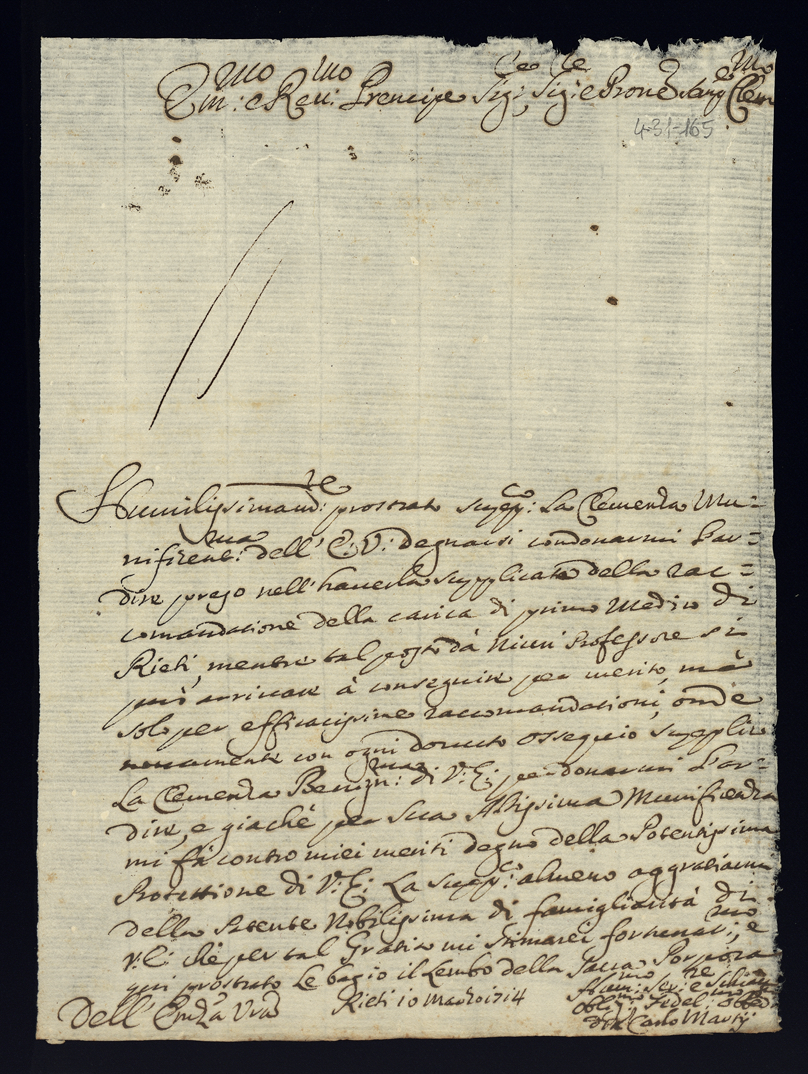 Em:mo e Reu:mo Prencipe Sig:re Sig:re e Prone
431-165
Humilissimam:te prostrato supp:co La Clemenza Mu=
nificent:ma dell' E: V: degnarsi condonarmi l'ar=
dire preso nell' hauerla supplicata della rac=
comandatione della carica di primo Medico di
Rieti, mentre tal posto da niun Professore si
può arriuare à conseguire per merito, mà
solo per efficacissime raccomandationi, onde
nouamente con ogni douuto ossequio supplico
La Clemenza Benign:ma di V: E: perdonarmi l'ar=
dire, e giachè per Sua Altissima Munificenza
mi fà contro miei meriti degno della Potentissima
Protettione di V: E: La supp:co almeno aggratiarmi
della Patente Nobilissima di famigliarità di
V: E: chè per tal Gratia mi stimarei fortunat:mo, e
qui prostrato Le bagio il Lembo della Sacra Porpora
Dell' Emza Vra Rieti 10 Marzo 1714
Hum:mo Ser:re e Schiauo
Obl:mo Fedel:mo
Carlo Martij